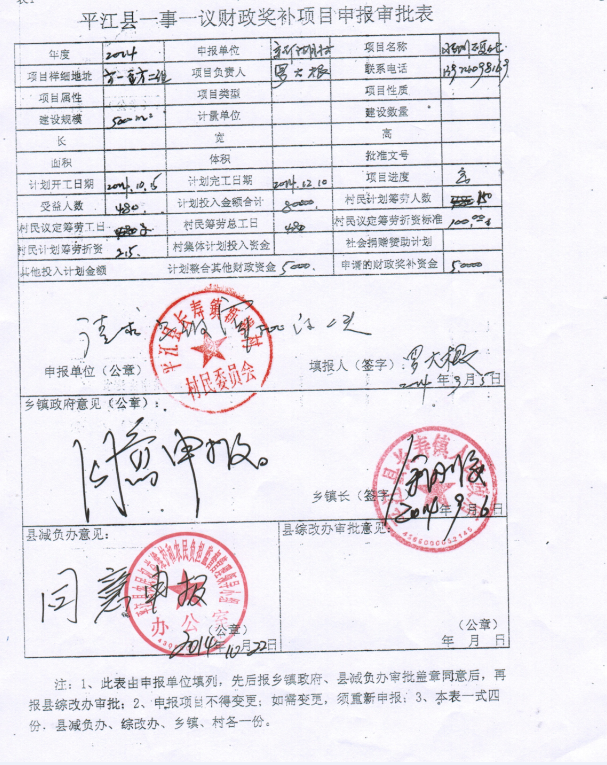 平江县一事一议财政奖补项目申报审批表
年度 2014 申报单位 项目名称
项目详细地址 项目负责人 罗大根 联系电话
项目属性 项目类型 项目性质
建设规模 500m² 计量单位 建设数量
长 宽 高
面积 体积 批准文号
计划开工日期 2014.10.5 计划完工日期 2014.12.10 项目进度
受益人数 480 计划投入金额合计 80000. 村民计划筹劳人数 150
村民议定筹劳工日 村民筹劳总工日 480 村民议定筹劳折资标准 100.00
村民计划筹劳折资 2.5. 村集体计划投入资金 社会捐赠赞助计划
其他投入计划金额 计划整合其他财政资金 5000. 申请的财政奖补资金 50000
平江县长寿镇 村民委员会
申报单位（公章） 填报人（签字）：罗大根
2014年9月5日
乡镇政府意见（公章）：
同意申报。
乡镇长（签字）
2014年9月6日
县减负办意见： 县综改办审批意见：
同意申报
办公室
（公章） （公章）
2014.10.22日 年 月 日
注：1、此表由申报单位填列，先后报乡镇政府、县减负办审批盖章同意后，再
报县综改办审批；2、申报项目不得变更；如需变更，须重新申报；3、本表一式四
份，县减负办、综改办、乡镇、村各一份。